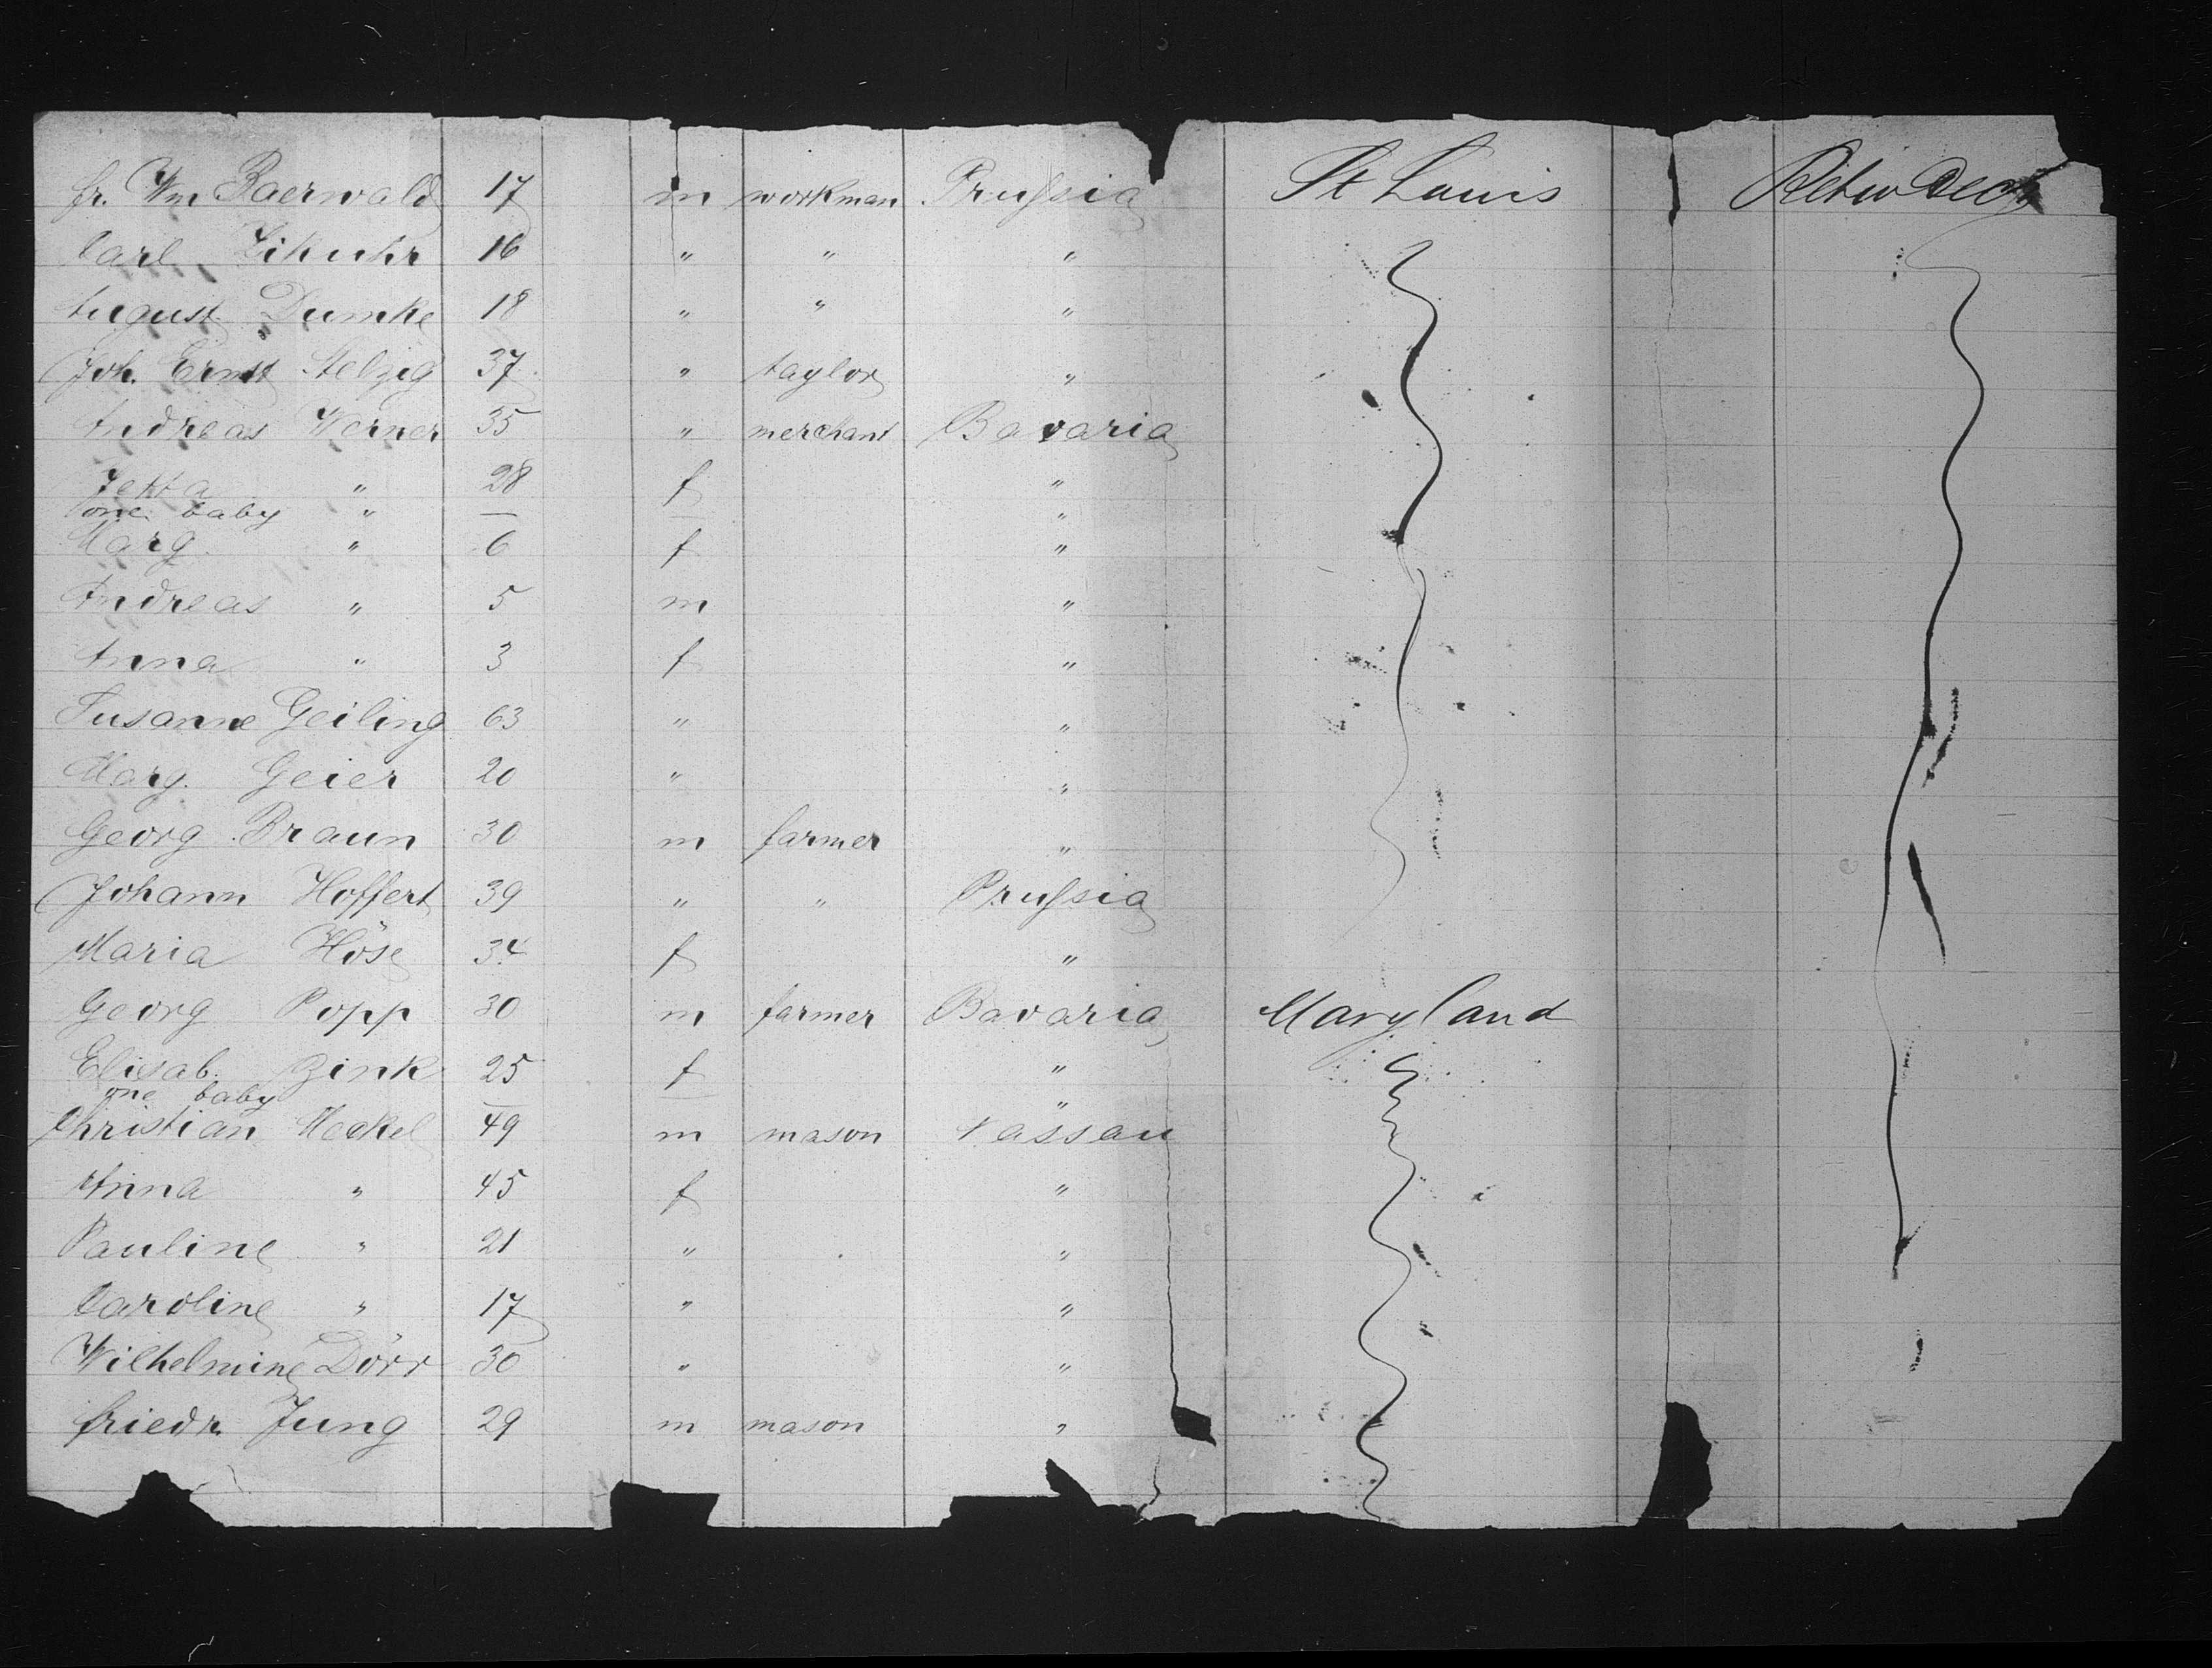 fr. Wm Baerwald 17 m workman Prussia St Louis Betw Deck
Carl Zikuhr 16 " " "
August Dumke 18 " " "
Joh. Ernst Stelzig 37 " taylor "
Andreas Werner 35 " merchant Bavaria
Jetta " 28 f "
one baby " — — "
Marg. " 6 f "
Andreas " 5 m "
Anna " 3 f "
Susanne Geiling 63 " "
Marg. Geier 20 " "
Georg Braun 30 m farmer "
Johann Hoffert 39 " " Prussia
Maria Höse 34 f "
Georg Popp 30 m farmer Bavaria Maryland
Elisab. Zink 25 f "
one baby — — "
Christian Meckel 49 m mason Nassau
Anna " 45 f "
Pauline " 21 " "
Caroline " 17 " "
Wilhelmine Dörr 30 " "
friedr. Jung 29 m mason "